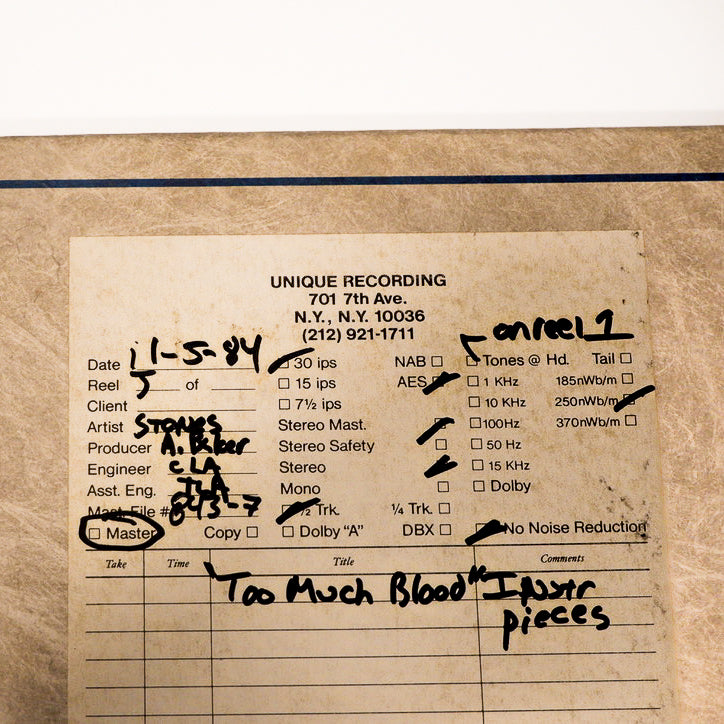 UNIQUE RECORDING
701 7th Ave.
N.Y., N.Y. 10036
(212) 921-1711
on reel 1
Date 11-5-84 30 ips NAB Tones @ Hd. Tail
Reel 5 of 15 ips AES 1 KHz 185nWb/m
Client 7½ ips 10 KHz 250nWb/m
Artist STONES Stereo Mast. 100Hz 370nWb/m
Producer A. Baker Stereo Safety 50 Hz
Engineer CLA Stereo 15 KHz
Asst. Eng. Mono Dolby
Mast. File # 843-7 ½ Trk. ¼ Trk.
Master Copy Dolby "A" DBX No Noise Reduction
Take Time Title Comments
"Too Much Blood" Instr
pieces